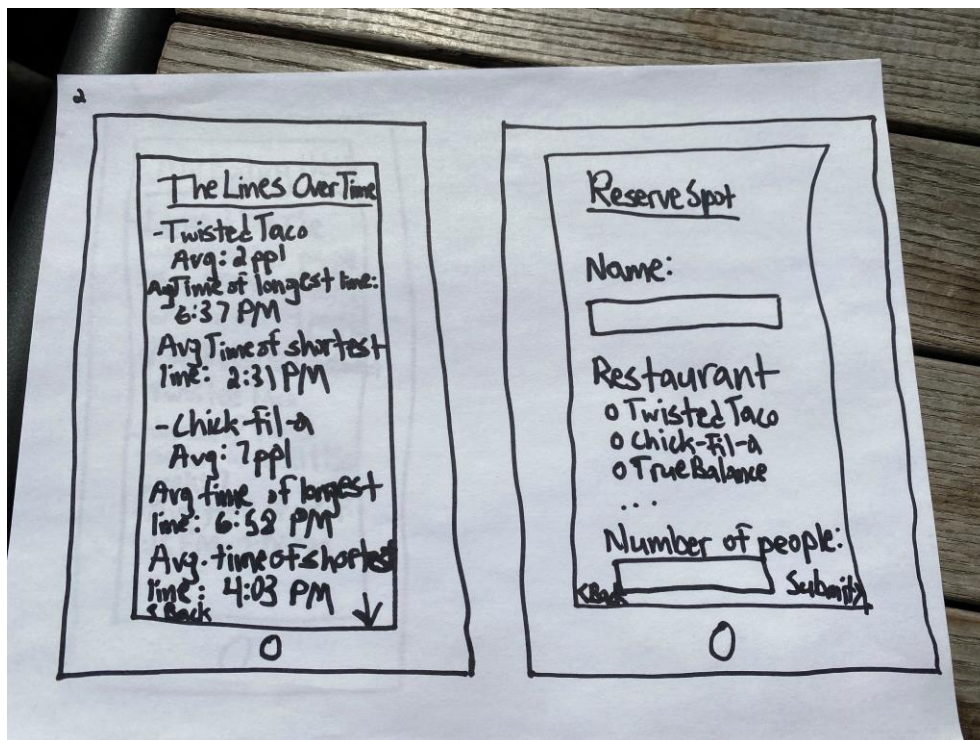 2
The Lines Over Time
-Twisted Taco
Avg: 2 ppl
Avg Time of longest line:
6:37 PM
Avg Time of shortest
line: 2:31 PM
-Chick-fil-a
Avg: 7 ppl
Avg time of longest
line: 6:58 PM
Avg. time of shortest
line: 4:03 PM
< Back
↓
Reserve Spot
Name:
Restaurant
o Twisted Taco
o Chick-fil-a
o True Balance
...
Number of people:
<Back
Submit>